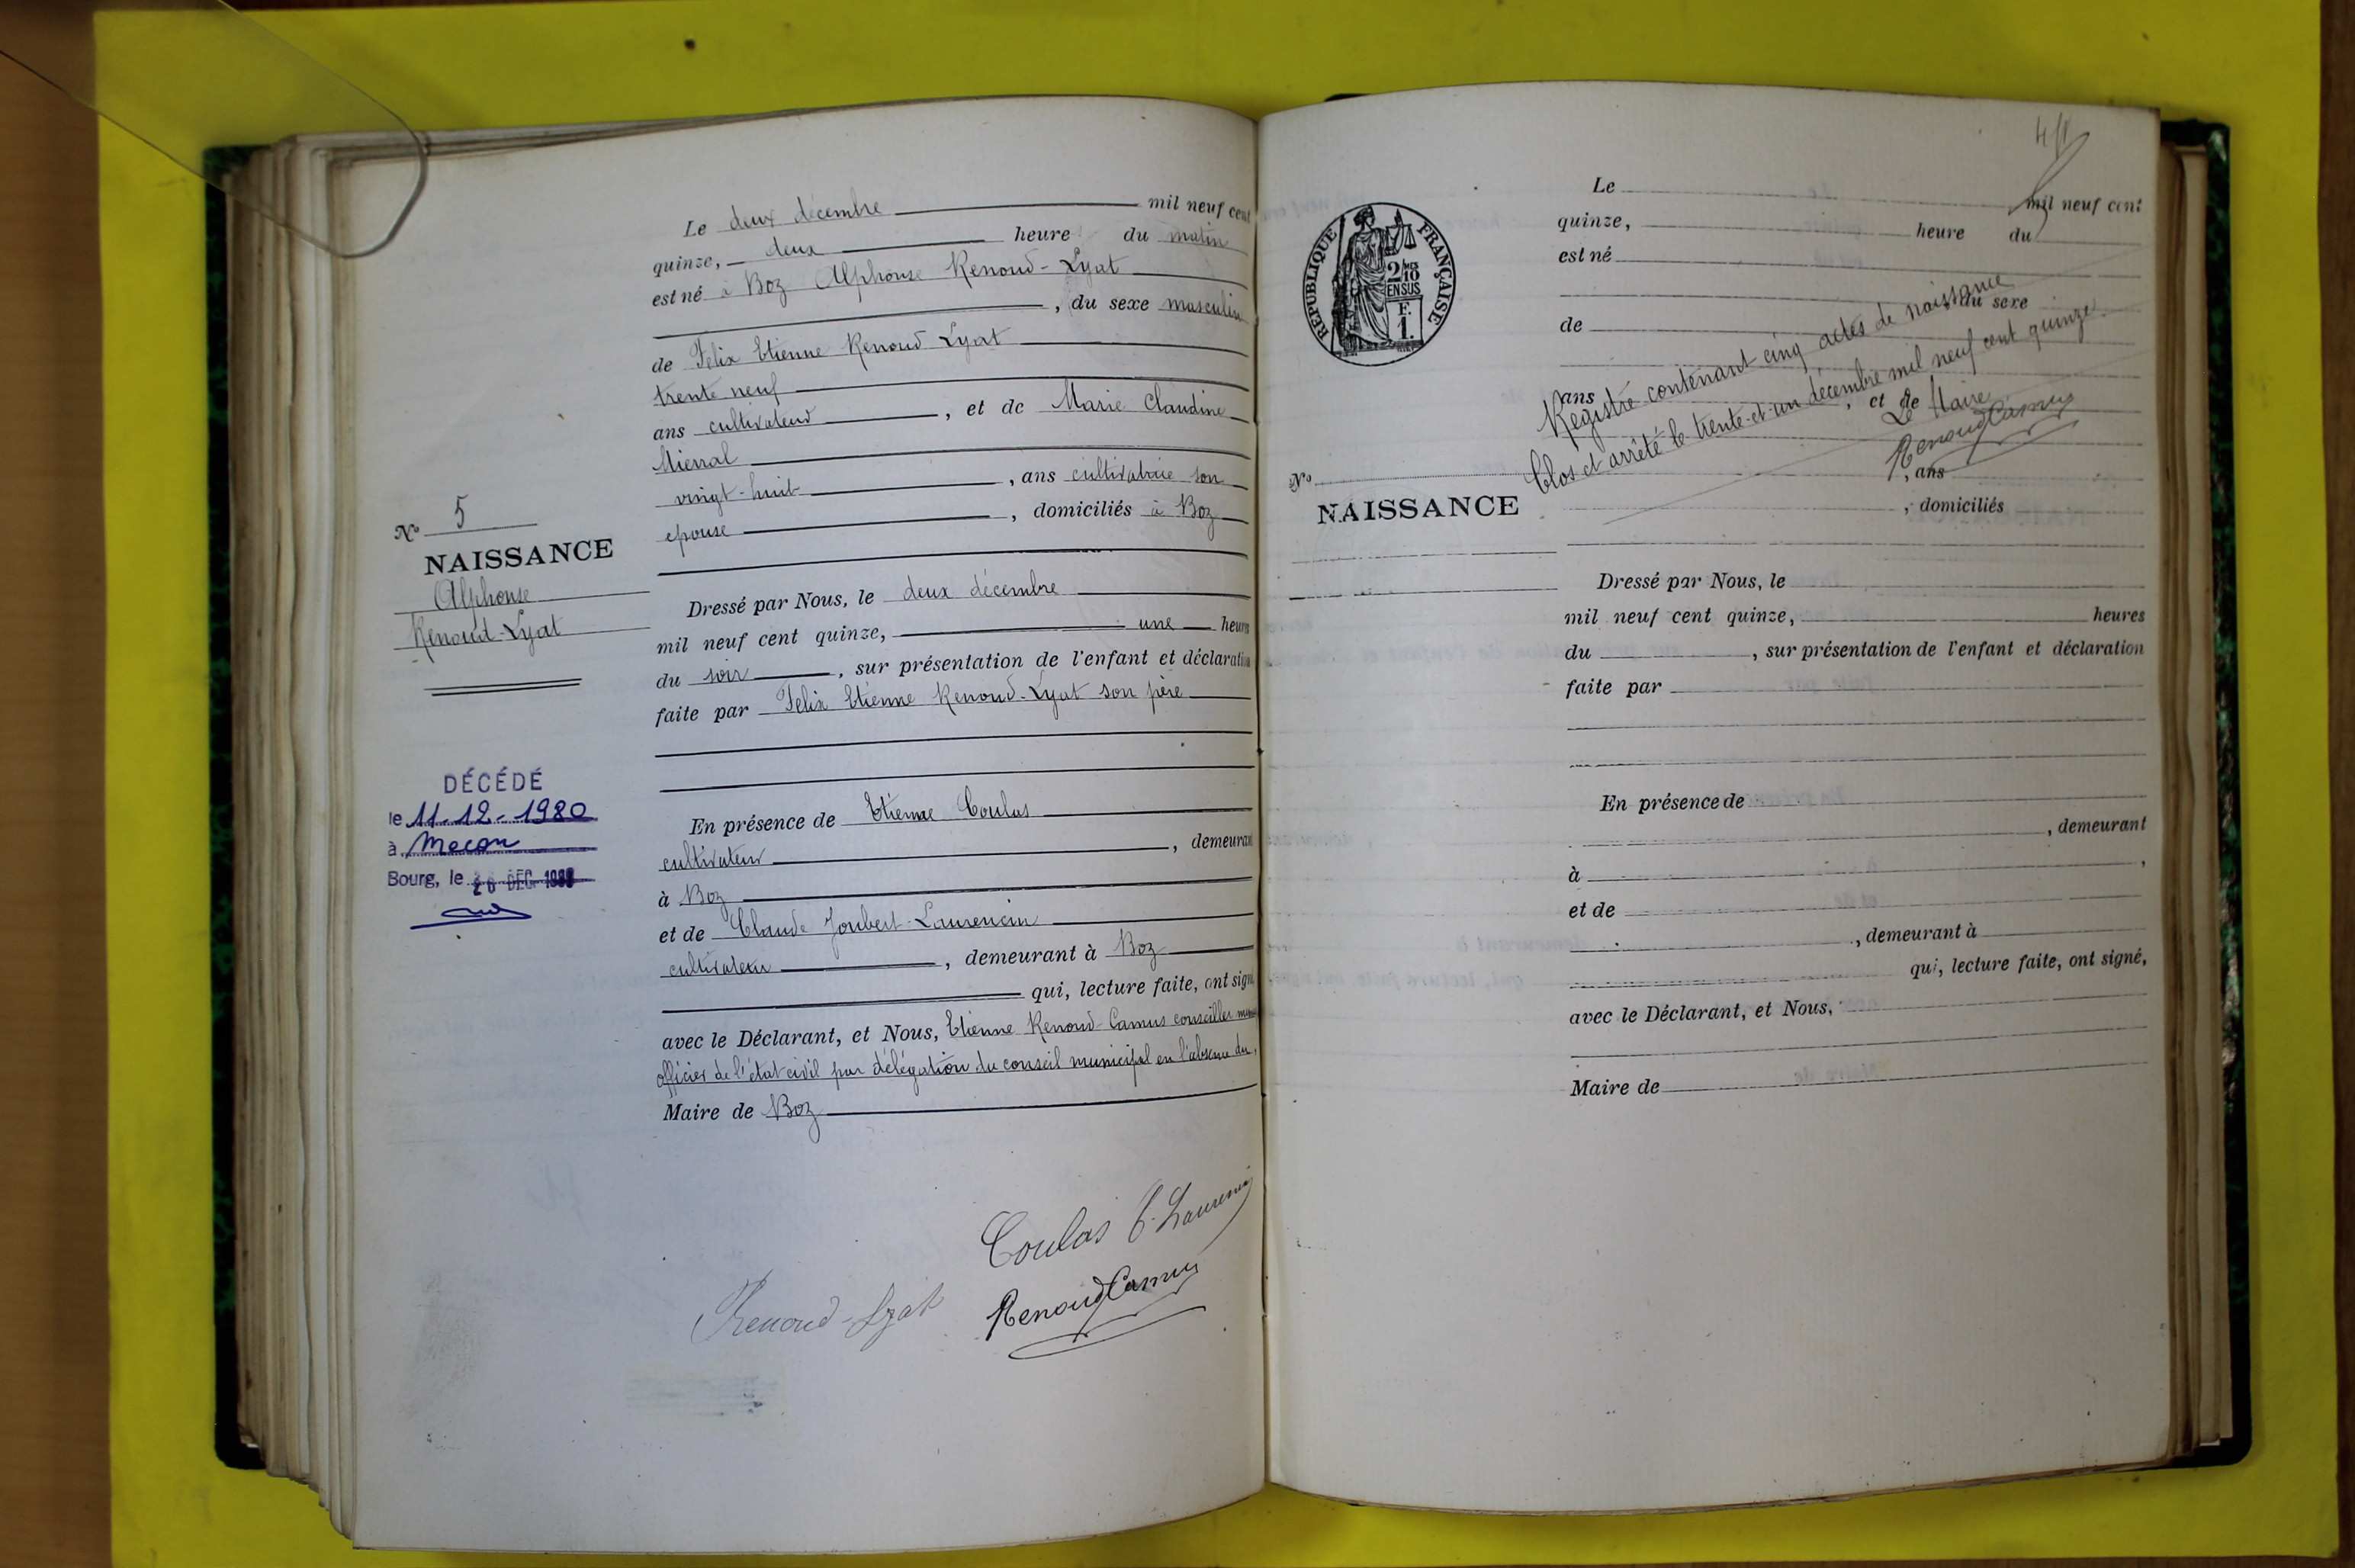 N° 5
NAISSANCE
Alphonse
Renoud-Lyat
DÉCÉDÉ
le 11-12-1980
à Mecon
Bourg, le DEC
Le deux décembre mil neuf cent
quinze, deux heure du matin
est né à Boz Alphonse Renoud-Lyat
, du sexe masculin
de Felix Etienne Renoud Lyat
trente neuf
ans cultivateur , et de Marie Claudine
vingt-huit , ans cultivatrice son
epouse , domiciliés à Boz
Dressé par Nous, le deux décembre
mil neuf cent quinze, une heures
du soir , sur présentation de l'enfant et déclaration
faite par Felix Etienne Renoud-Lyat son père
En présence de Etienne Coulas
cultivateur , demeurant
à Boz
et de Claude Joubert-Laurencin
cultivateur , demeurant à Boz
qui, lecture faite, ont signé
avec le Déclarant, et Nous, Etienne Renoud-Camus conseiller
officier de l'état civil par délégation du conseil municipal en l'absence du
Maire de Boz
Coulas J. Laurencin
Renoud-Lyat RenoudCamus
REPUBLIQUE FRANÇAISE
2/10
EN SUS
F.
1.
N°
NAISSANCE
Le mil neuf cent
quinze, heure du
est né
du sexe
de
ans , et de
, ans
, domiciliés
Registre contenant cinq actes de naissance
Clos et arrêté le trente-et-un décembre mil neuf cent quinze.
Le Maire
RenoudCamus
Dressé par Nous, le
mil neuf cent quinze, heures
du , sur présentation de l'enfant et déclaration
faite par
En présence de
, demeurant
à ,
et de
, demeurant à
qui, lecture faite, ont signé,
avec le Déclarant, et Nous,
Maire de